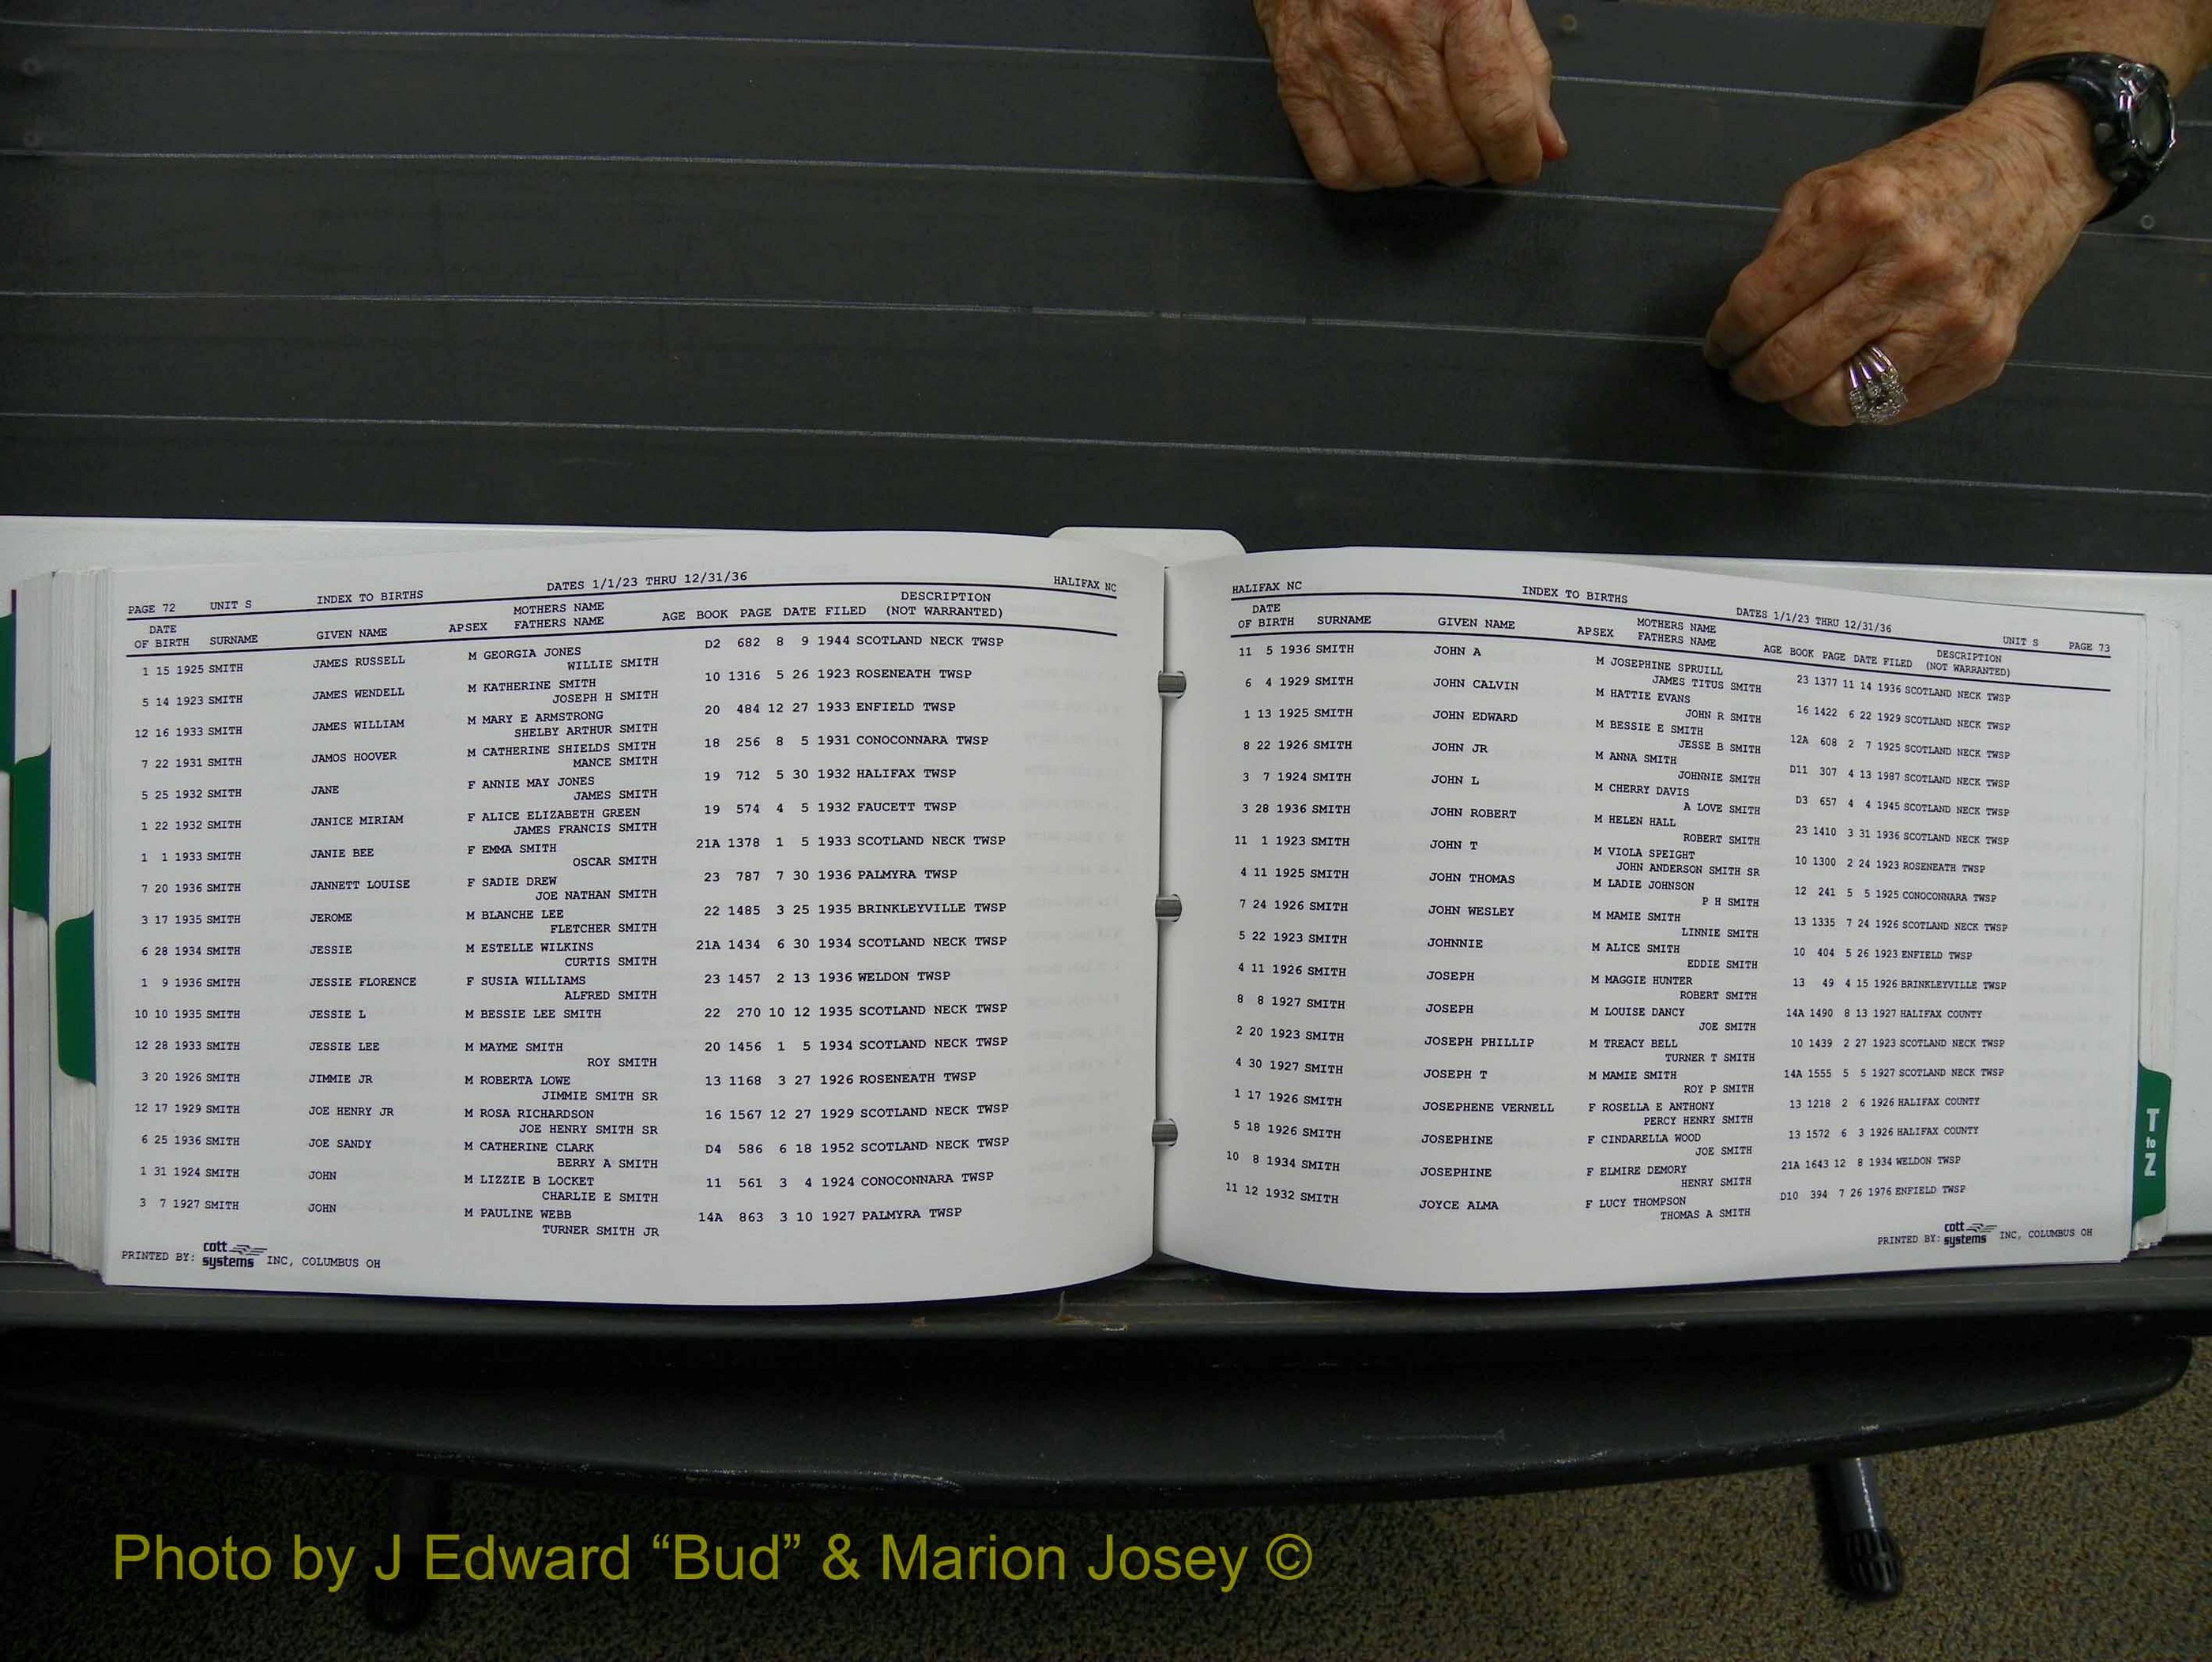 PAGE 72 UNIT S INDEX TO BIRTHS DATES 1/1/23 THRU 12/31/36 HALIFAX NC
DATE MOTHERS NAME DESCRIPTION
OF BIRTH SURNAME GIVEN NAME AP SEX FATHERS NAME AGE BOOK PAGE DATE FILED (NOT WARRANTED)
1 15 1925 SMITH JAMES RUSSELL M GEORGIA JONES D2 682 8 9 1944 SCOTLAND NECK TWSP
WILLIE SMITH
5 14 1923 SMITH JAMES WENDELL M KATHERINE SMITH 10 1316 5 26 1923 ROSENEATH TWSP
JOSEPH H SMITH
12 16 1933 SMITH JAMES WILLIAM M MARY E ARMSTRONG 20 484 12 27 1933 ENFIELD TWSP
SHELBY ARTHUR SMITH
7 22 1931 SMITH JAMOS HOOVER M CATHERINE SHIELDS SMITH 18 256 8 5 1931 CONOCONNARA TWSP
MANCE SMITH
5 25 1932 SMITH JANE F ANNIE MAY JONES 19 712 5 30 1932 HALIFAX TWSP
JAMES SMITH
1 22 1932 SMITH JANICE MIRIAM F ALICE ELIZABETH GREEN 19 574 4 5 1932 FAUCETT TWSP
JAMES FRANCIS SMITH
1 1 1933 SMITH JANIE BEE F EMMA SMITH 21A 1378 1 5 1933 SCOTLAND NECK TWSP
OSCAR SMITH
7 20 1936 SMITH JANNETT LOUISE F SADIE DREW 23 787 7 30 1936 PALMYRA TWSP
JOE NATHAN SMITH
3 17 1935 SMITH JEROME M BLANCHE LEE 22 1485 3 25 1935 BRINKLEYVILLE TWSP
FLETCHER SMITH
6 28 1934 SMITH JESSIE M ESTELLE WILKINS 21A 1434 6 30 1934 SCOTLAND NECK TWSP
CURTIS SMITH
1 9 1936 SMITH JESSIE FLORENCE F SUSIA WILLIAMS 23 1457 2 13 1936 WELDON TWSP
ALFRED SMITH
10 10 1935 SMITH JESSIE L M BESSIE LEE SMITH 22 270 10 12 1935 SCOTLAND NECK TWSP
12 28 1933 SMITH JESSIE LEE M MAYME SMITH 20 1456 1 5 1934 SCOTLAND NECK TWSP
ROY SMITH
3 20 1926 SMITH JIMMIE JR M ROBERTA LOWE 13 1168 3 27 1926 ROSENEATH TWSP
JIMMIE SMITH SR
12 17 1929 SMITH JOE HENRY JR M ROSA RICHARDSON 16 1567 12 27 1929 SCOTLAND NECK TWSP
JOE HENRY SMITH SR
6 25 1936 SMITH JOE SANDY M CATHERINE CLARK D4 586 6 18 1952 SCOTLAND NECK TWSP
BERRY A SMITH
1 31 1924 SMITH JOHN M LIZZIE B LOCKET 11 561 3 4 1924 CONOCONNARA TWSP
CHARLIE E SMITH
3 7 1927 SMITH JOHN M PAULINE WEBB 14A 863 3 10 1927 PALMYRA TWSP
TURNER SMITH JR
PRINTED BY: cott systems INC, COLUMBUS OH
HALIFAX NC INDEX TO BIRTHS DATES 1/1/23 THRU 12/31/36 UNIT S PAGE 73
DATE MOTHERS NAME DESCRIPTION
OF BIRTH SURNAME GIVEN NAME AP SEX FATHERS NAME AGE BOOK PAGE DATE FILED (NOT WARRANTED)
11 5 1936 SMITH JOHN A M JOSEPHINE SPRUILL 23 1377 11 14 1936 SCOTLAND NECK TWSP
JAMES TITUS SMITH
6 4 1929 SMITH JOHN CALVIN M HATTIE EVANS 16 1422 6 22 1929 SCOTLAND NECK TWSP
JOHN R SMITH
1 13 1925 SMITH JOHN EDWARD M BESSIE E SMITH 12A 608 2 7 1925 SCOTLAND NECK TWSP
JESSE B SMITH
8 22 1926 SMITH JOHN JR M ANNA SMITH D11 307 4 13 1987 SCOTLAND NECK TWSP
JOHNNIE SMITH
3 7 1924 SMITH JOHN L M CHERRY DAVIS D3 657 4 4 1945 SCOTLAND NECK TWSP
A LOVE SMITH
3 28 1936 SMITH JOHN ROBERT M HELEN HALL 23 1410 3 31 1936 SCOTLAND NECK TWSP
ROBERT SMITH
11 1 1923 SMITH JOHN T M VIOLA SPEIGHT 10 1300 2 24 1923 ROSENEATH TWSP
JOHN ANDERSON SMITH SR
4 11 1925 SMITH JOHN THOMAS M LADIE JOHNSON 12 241 5 5 1925 CONOCONNARA TWSP
P H SMITH
7 24 1926 SMITH JOHN WESLEY M MAMIE SMITH 13 1335 7 24 1926 SCOTLAND NECK TWSP
LINNIE SMITH
5 22 1923 SMITH JOHNNIE M ALICE SMITH 10 404 5 26 1923 ENFIELD TWSP
EDDIE SMITH
4 11 1926 SMITH JOSEPH M MAGGIE HUNTER 13 49 4 15 1926 BRINKLEYVILLE TWSP
ROBERT SMITH
8 8 1927 SMITH JOSEPH M LOUISE DANCY 14A 1490 8 13 1927 HALIFAX COUNTY
JOE SMITH
2 20 1923 SMITH JOSEPH PHILLIP M TREACY BELL 10 1439 2 27 1923 SCOTLAND NECK TWSP
TURNER T SMITH
4 30 1927 SMITH JOSEPH T M MAMIE SMITH 14A 1555 5 5 1927 SCOTLAND NECK TWSP
ROY P SMITH
1 17 1926 SMITH JOSEPHENE VERNELL F ROSELLA E ANTHONY 13 1218 2 6 1926 HALIFAX COUNTY
PERCY HENRY SMITH
5 18 1926 SMITH JOSEPHINE F CINDARELLA WOOD 13 1572 6 3 1926 HALIFAX COUNTY
JOE SMITH
10 8 1934 SMITH JOSEPHINE F ELMIRE DEMORY 21A 1643 12 8 1934 WELDON TWSP
HENRY SMITH
11 12 1932 SMITH JOYCE ALMA F LUCY THOMPSON D10 394 7 26 1976 ENFIELD TWSP
THOMAS A SMITH
PRINTED BY: cott systems INC, COLUMBUS OH
T
to
Z
Photo by J Edward “Bud” & Marion Josey ©